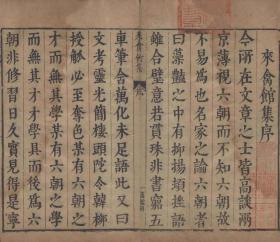 來禽館集序
今所在文章之士皆高談兩
京薄視六朝而不知六朝故
不易為也名家之論六朝者
曰藻豔之中有抑揚頓挫語
雖合璧意若貫珠非書窮五
車筆含萬化未足語此又曰
文考靈光簡棲頭陀令韓柳
授觚必至奪色某有六朝之
才而無其學某有六朝之學
而無其才才學具而後為六
朝非修習日久實見得是寧